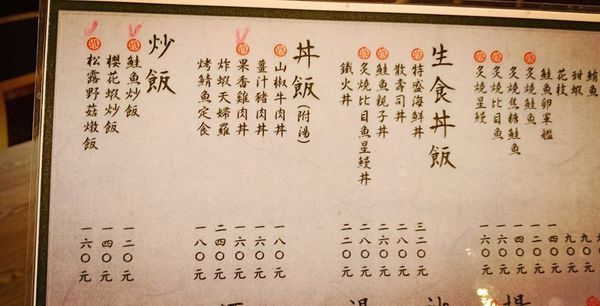 鮪魚
甜蝦
花枝 九〇元
鮭魚卵軍艦 一六〇元
炙燒鮭魚 一〇〇元
炙燒焦糖鮭魚 一二〇元
炙燒比目魚 一六〇元
炙燒星鰻 一六〇元
生食丼飯
特盛海鮮丼 三二〇元
散壽司丼 二一〇元
鮭魚親子丼 二四〇元
炙燒比目魚星鰻丼 二二〇元
鐵火丼 二二〇元
丼飯(附湯)
山椒牛肉丼 一八〇元
薑汁豬肉丼 一六〇元
果香雞肉丼 一六〇元
炸蝦天婦羅 一四〇元
烤鯖魚定食 一八〇元
炒飯
鮭魚炒飯 一二〇元
櫻花蝦炒飯 一四〇元
松露野菇燉飯 一六〇元